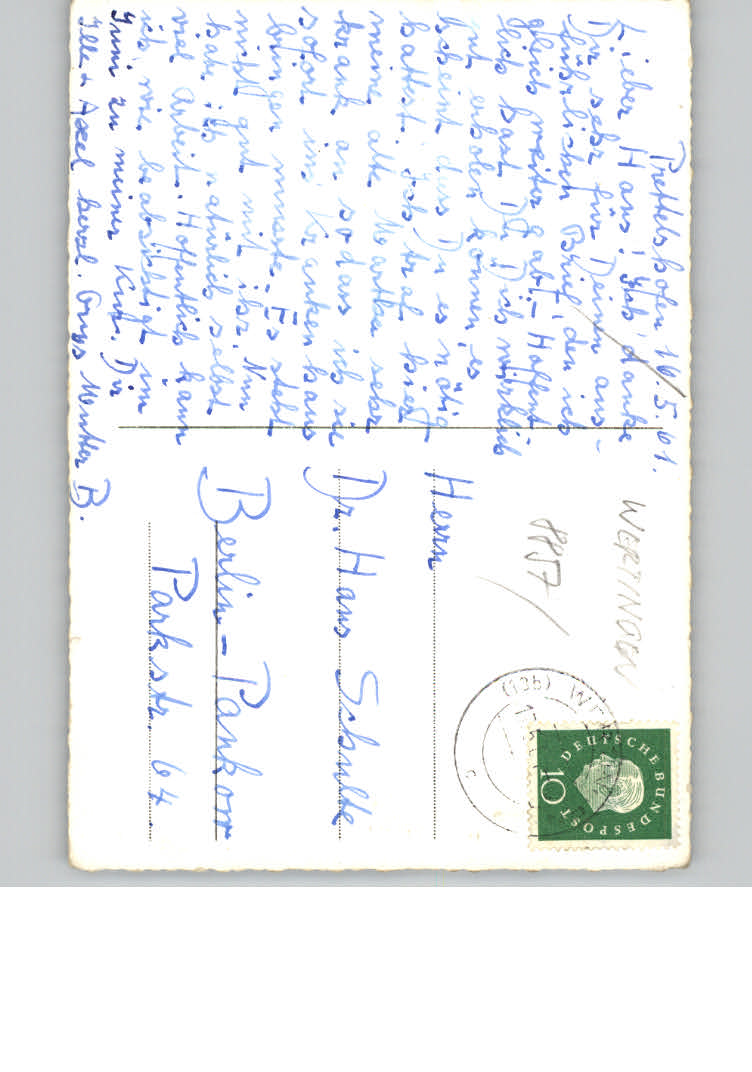 Prettelshofen 16.5.61.
Lieber Hans! Ich danke
Dir sehr für Deinen aus-
führlichen Brief, den ich
gleich weiter gab. – Hoffent-
lich hast Du Dich wirklich
gut erholen können, es
scheint dass Du es nötig
hattest. Ich traf hier
meine alte Martha sehr
krank an, sodass ich sie
sofort ins Krankenhaus
bringen musste. Es steht
nicht gut mit ihr. Nun
habe ich natürlich selbst
viel Arbeit. Hoffentlich kann
ich wie beabsichtigt im
Juni zu meiner Kur. Dir
Ille + Axel herzl. Grüsse Mutter B.
WERTINGEN
8857
Herrn
Dr. Hans Schulte
Berlin-Pankow
Parkstr. 64
(13b) WERTINGEN
DEUTSCHE BUNDESPOST
10